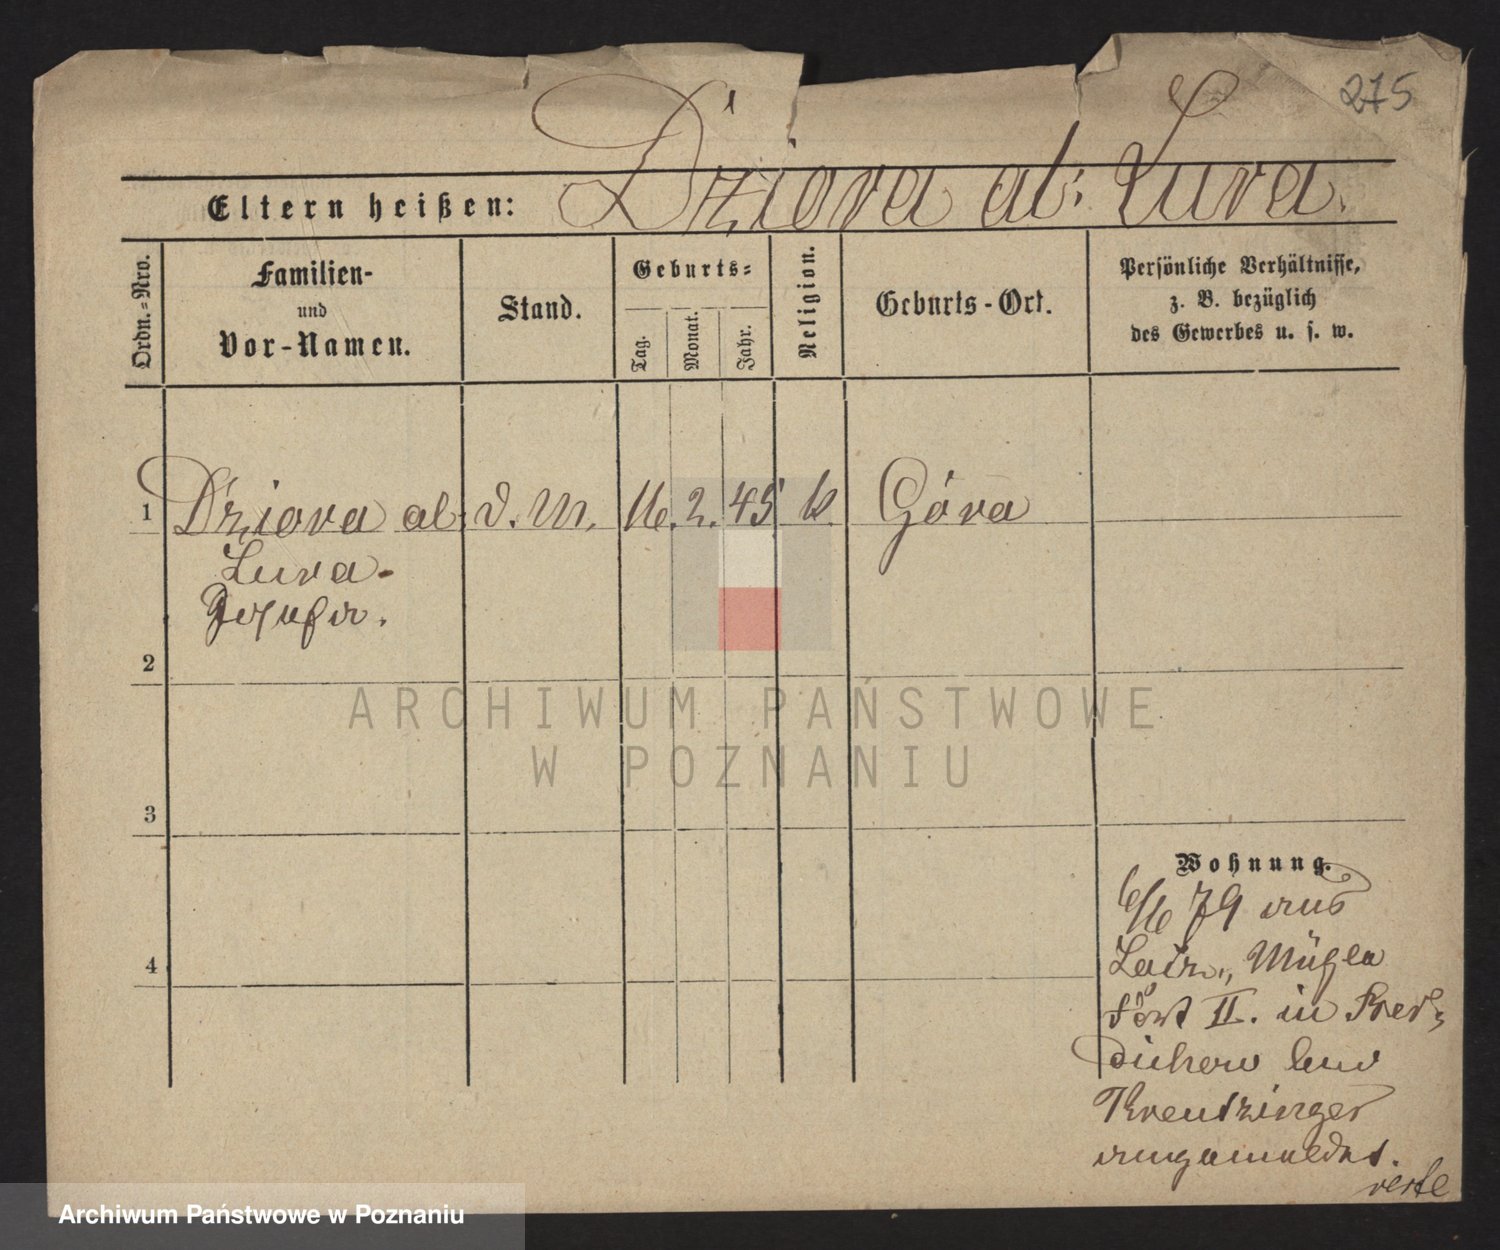 275
Eltern heißen: Dziora al: Lura.
Ordn.-Nro.
Familien-
und
Vor-Namen.
Stand.
Geburts-
Tag.
Monat.
Jahr.
Religion.
Geburts-Ort.
Persönliche Verhältnisse,
z. B. bezüglich
des Gewerbes u. s. w.
1 Dziora al: d. M. 16. 2. 45 k. Góra
Lura-
Josefa.
2
3
4
Wohnung.
6/6 79 aus
Mühle
Fort II. in
bei
Kreutzinger
angemeldet.
verte
ARCHIWUM PAŃSTWOWE
W POZNANIU
Archiwum Państwowe w Poznaniu